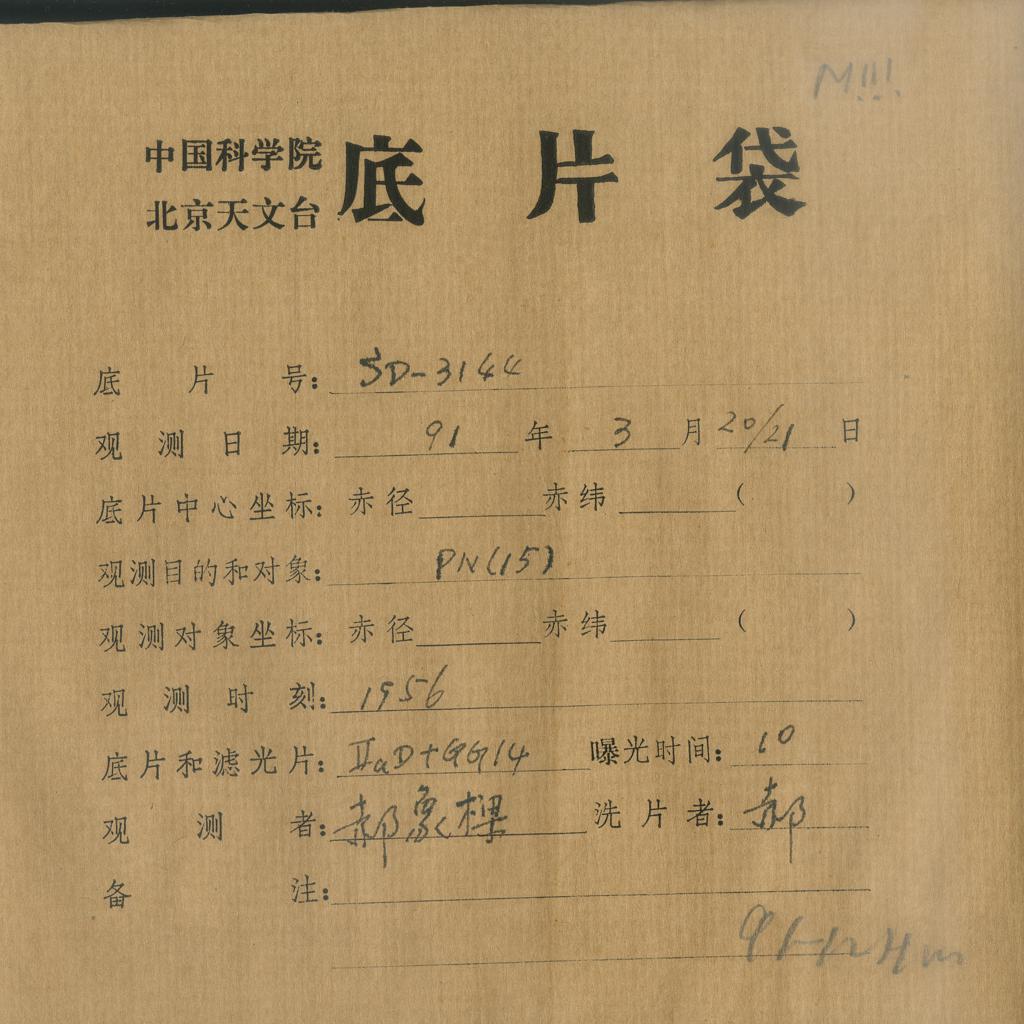 M!!!
中国科学院
北京天文台
底片袋
底片号：SD-3144
观测日期：91年3月20/21日
底片中心坐标：赤径 赤纬 （ ）
观测目的和对象：PN(15)
观测对象坐标：赤径 赤纬 （ ）
观测时刻：1956
底片和滤光片：IIaD+GG14 曝光时间：10
观测者：郝象樑 洗片者：郝
备注：